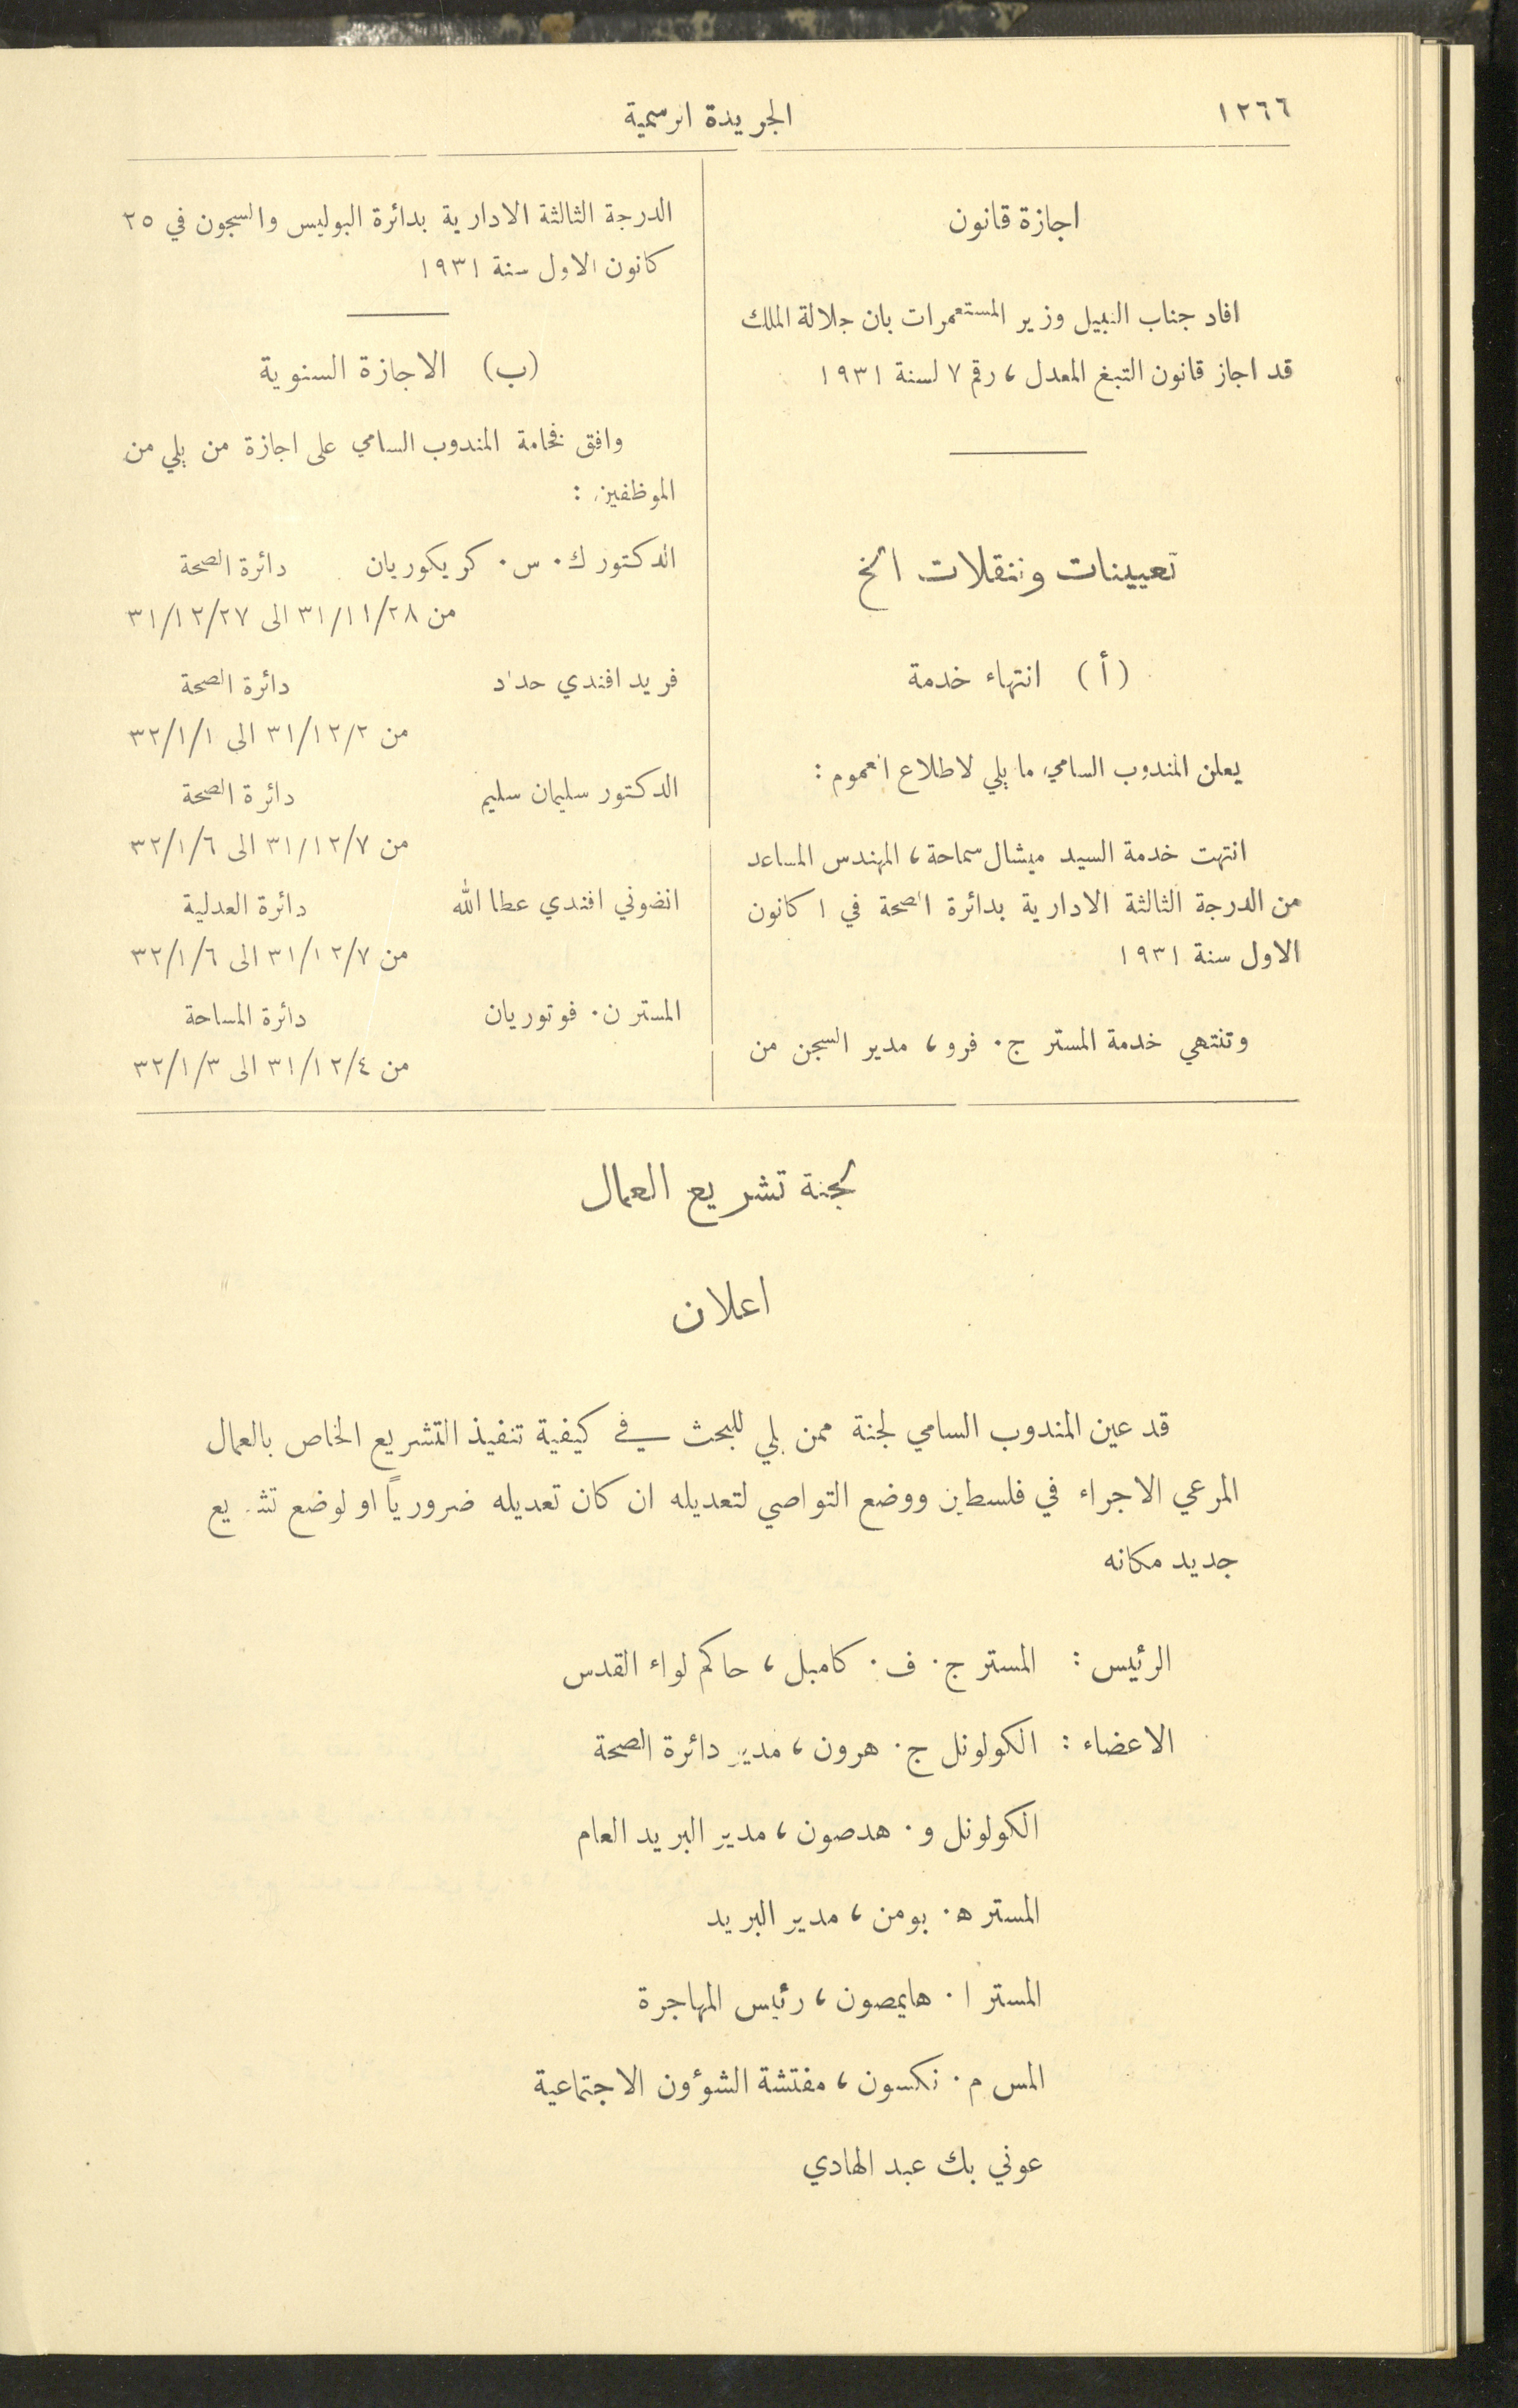 ١٢٦٦
الجريدة الرسمية
اجازة قانون
افاد جناب النبيل وزير المستعمرات بان جلالة الملك
قد اجاز قانون التبغ المعدل، رقم ٧ لسنة ١٩٣١
تعيينات وتنقلات الخ
(أ) انتهاء خدمة
يعلن المندوب السامي ما يلي لاطلاع العموم :
انتهت خدمة السيد ميشال سماحة، المهندس المساعد
من الدرجة الثالثة الادارية بدائرة الصحة في ١ كانون
الاول سنة ١٩٣١
وتنتهي خدمة المستر ج. فرو، مدير السجن من
الدرجة الثالثة الادارية بدائرة البوليس والسجون في ٢٥
كانون الاول سنة ١٩٣١
(ب) الاجازة السنوية
وافق فخامة المندوب السامي على اجازة من يلي من
الموظفين :
الدكتور ك. س. كريكوريان دائرة الصحة
من ٣١/١١/٢٨ الى ٣١/١٢/٢٧
فريد افندي حداد دائرة الصحة
من ٣١/١٢/٢ الى ٣٢/١/١
الدكتور سليمان سليم دائرة الصحة
من ٣١/١٢/٧ الى ٣٢/١/٦
انضوني افندي عطا الله دائرة العدلية
من ٣١/١٢/٧ الى ٣٢/١/٦
المستر ن. فوتوريان دائرة المساحة
من ٣١/١٢/٤ الى ٣٢/١/٣
لجنة تشريع العمال
اعلان
قد عين المندوب السامي لجنة ممن يلي للبحث في كيفية تنفيذ التشريع الخاص بالعمال
المرعي الاجراء في فلسطين ووضع التواصي لتعديله ان كان تعديله ضرورياً او لوضع تشريع
جديد مكانه
الرئيس : المستر ج. ف. كامبل، حاكم لواء القدس
الاعضاء : الكولونل ج. هرون، مدير دائرة الصحة
الكولونل و. هدصون، مدير البريد العام
المستر ه. بومن، مدير البريد
المستر ا. هايمصون، رئيس المهاجرة
المس م. نكسون، مفتشة الشوؤن الاجتماعية
عوني بك عبد الهادي